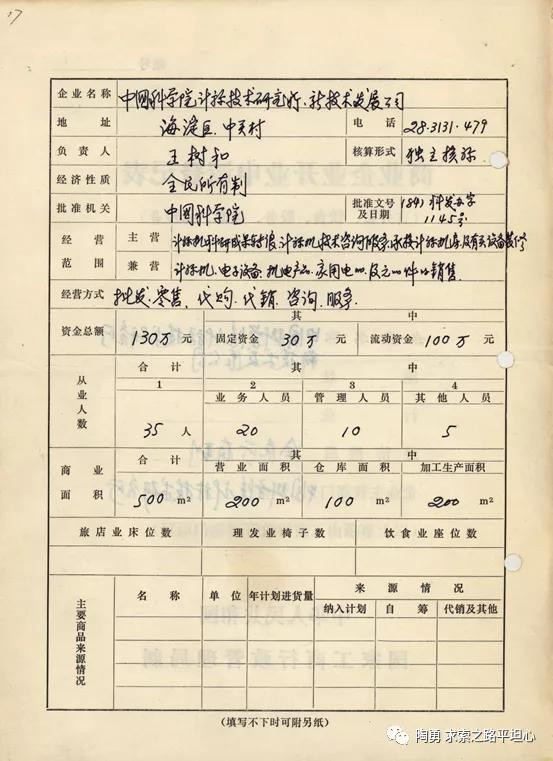 企业名称 中国科学院计标技术研究所.新技术发展公司
地址 海淀区.中关村 电话 28·3131·479
负责人 王树和 核算形式 独立核标
经济性质 全民所有制
批准机关 中国科学院 批准文号及日期 (84)科发办字1145号
经营范围 主营 计标机科研成果转让,计标机技术咨询服务,承接计标机房及有关设备装修
兼营 计标机.电子设备.机电产品.家用电器.及元器件的销售.
经营方式 批发.零售.代购.代销.咨询.服务.
资金总额 130万元 其中 固定资金 30万元 流动资金 100万元
从业人数 合计 其中
1 2 3 4
业务人员 管理人员 其他人员
35人 20 10 5
商业面积 合计 其中
营业面积 仓库面积 加工生产面积
500 m² 200 m² 100 m² 200 m²
旅店业床位数 理发业椅子数 饮食业座位数
主要商品来源情况 名称 单位 年计划进货量 来源情况
纳入计划 自筹 代销及其他
(填写不下时可附另纸)
陶勇 求索之路平坦心